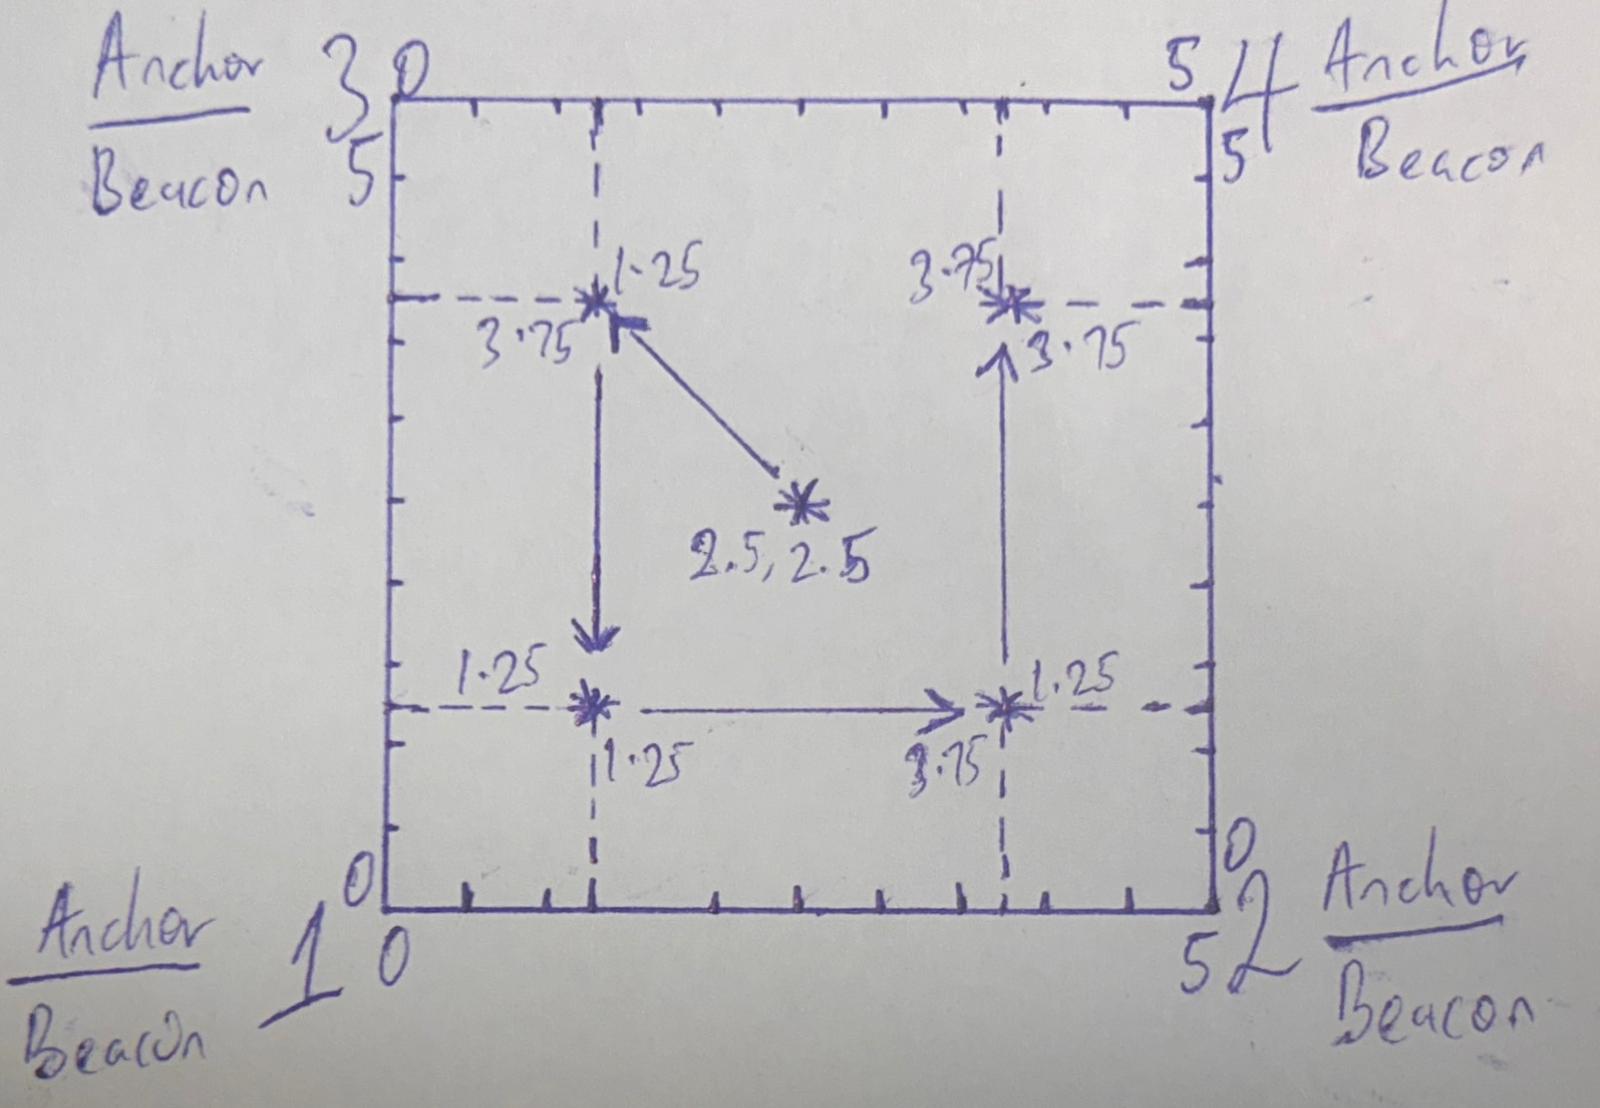 Anchor
Beacon
3
0
5
5
4
5
Anchor
Beacon
1.25
3.75
3.75
3.75
2.5, 2.5
1.25
1.25
1.25
3.75
0
0
1
Anchor
Beacon
0
5
2
Anchor
Beacon